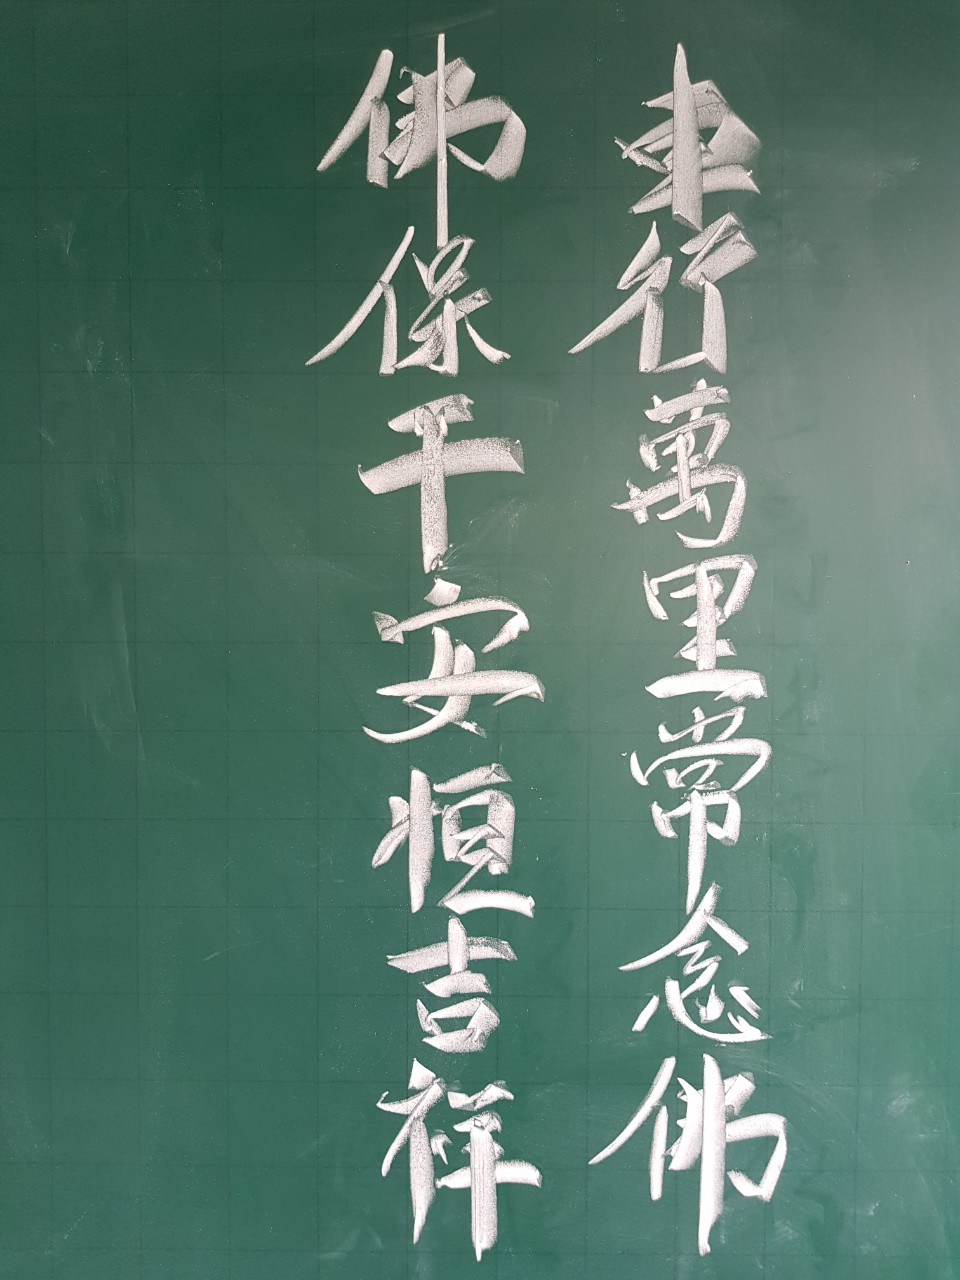 車行萬里常念佛
佛保平安恒吉祥